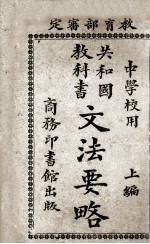 教育部審定
中學校用
上編
共和國
教科書
文法要略
商務印書館出版